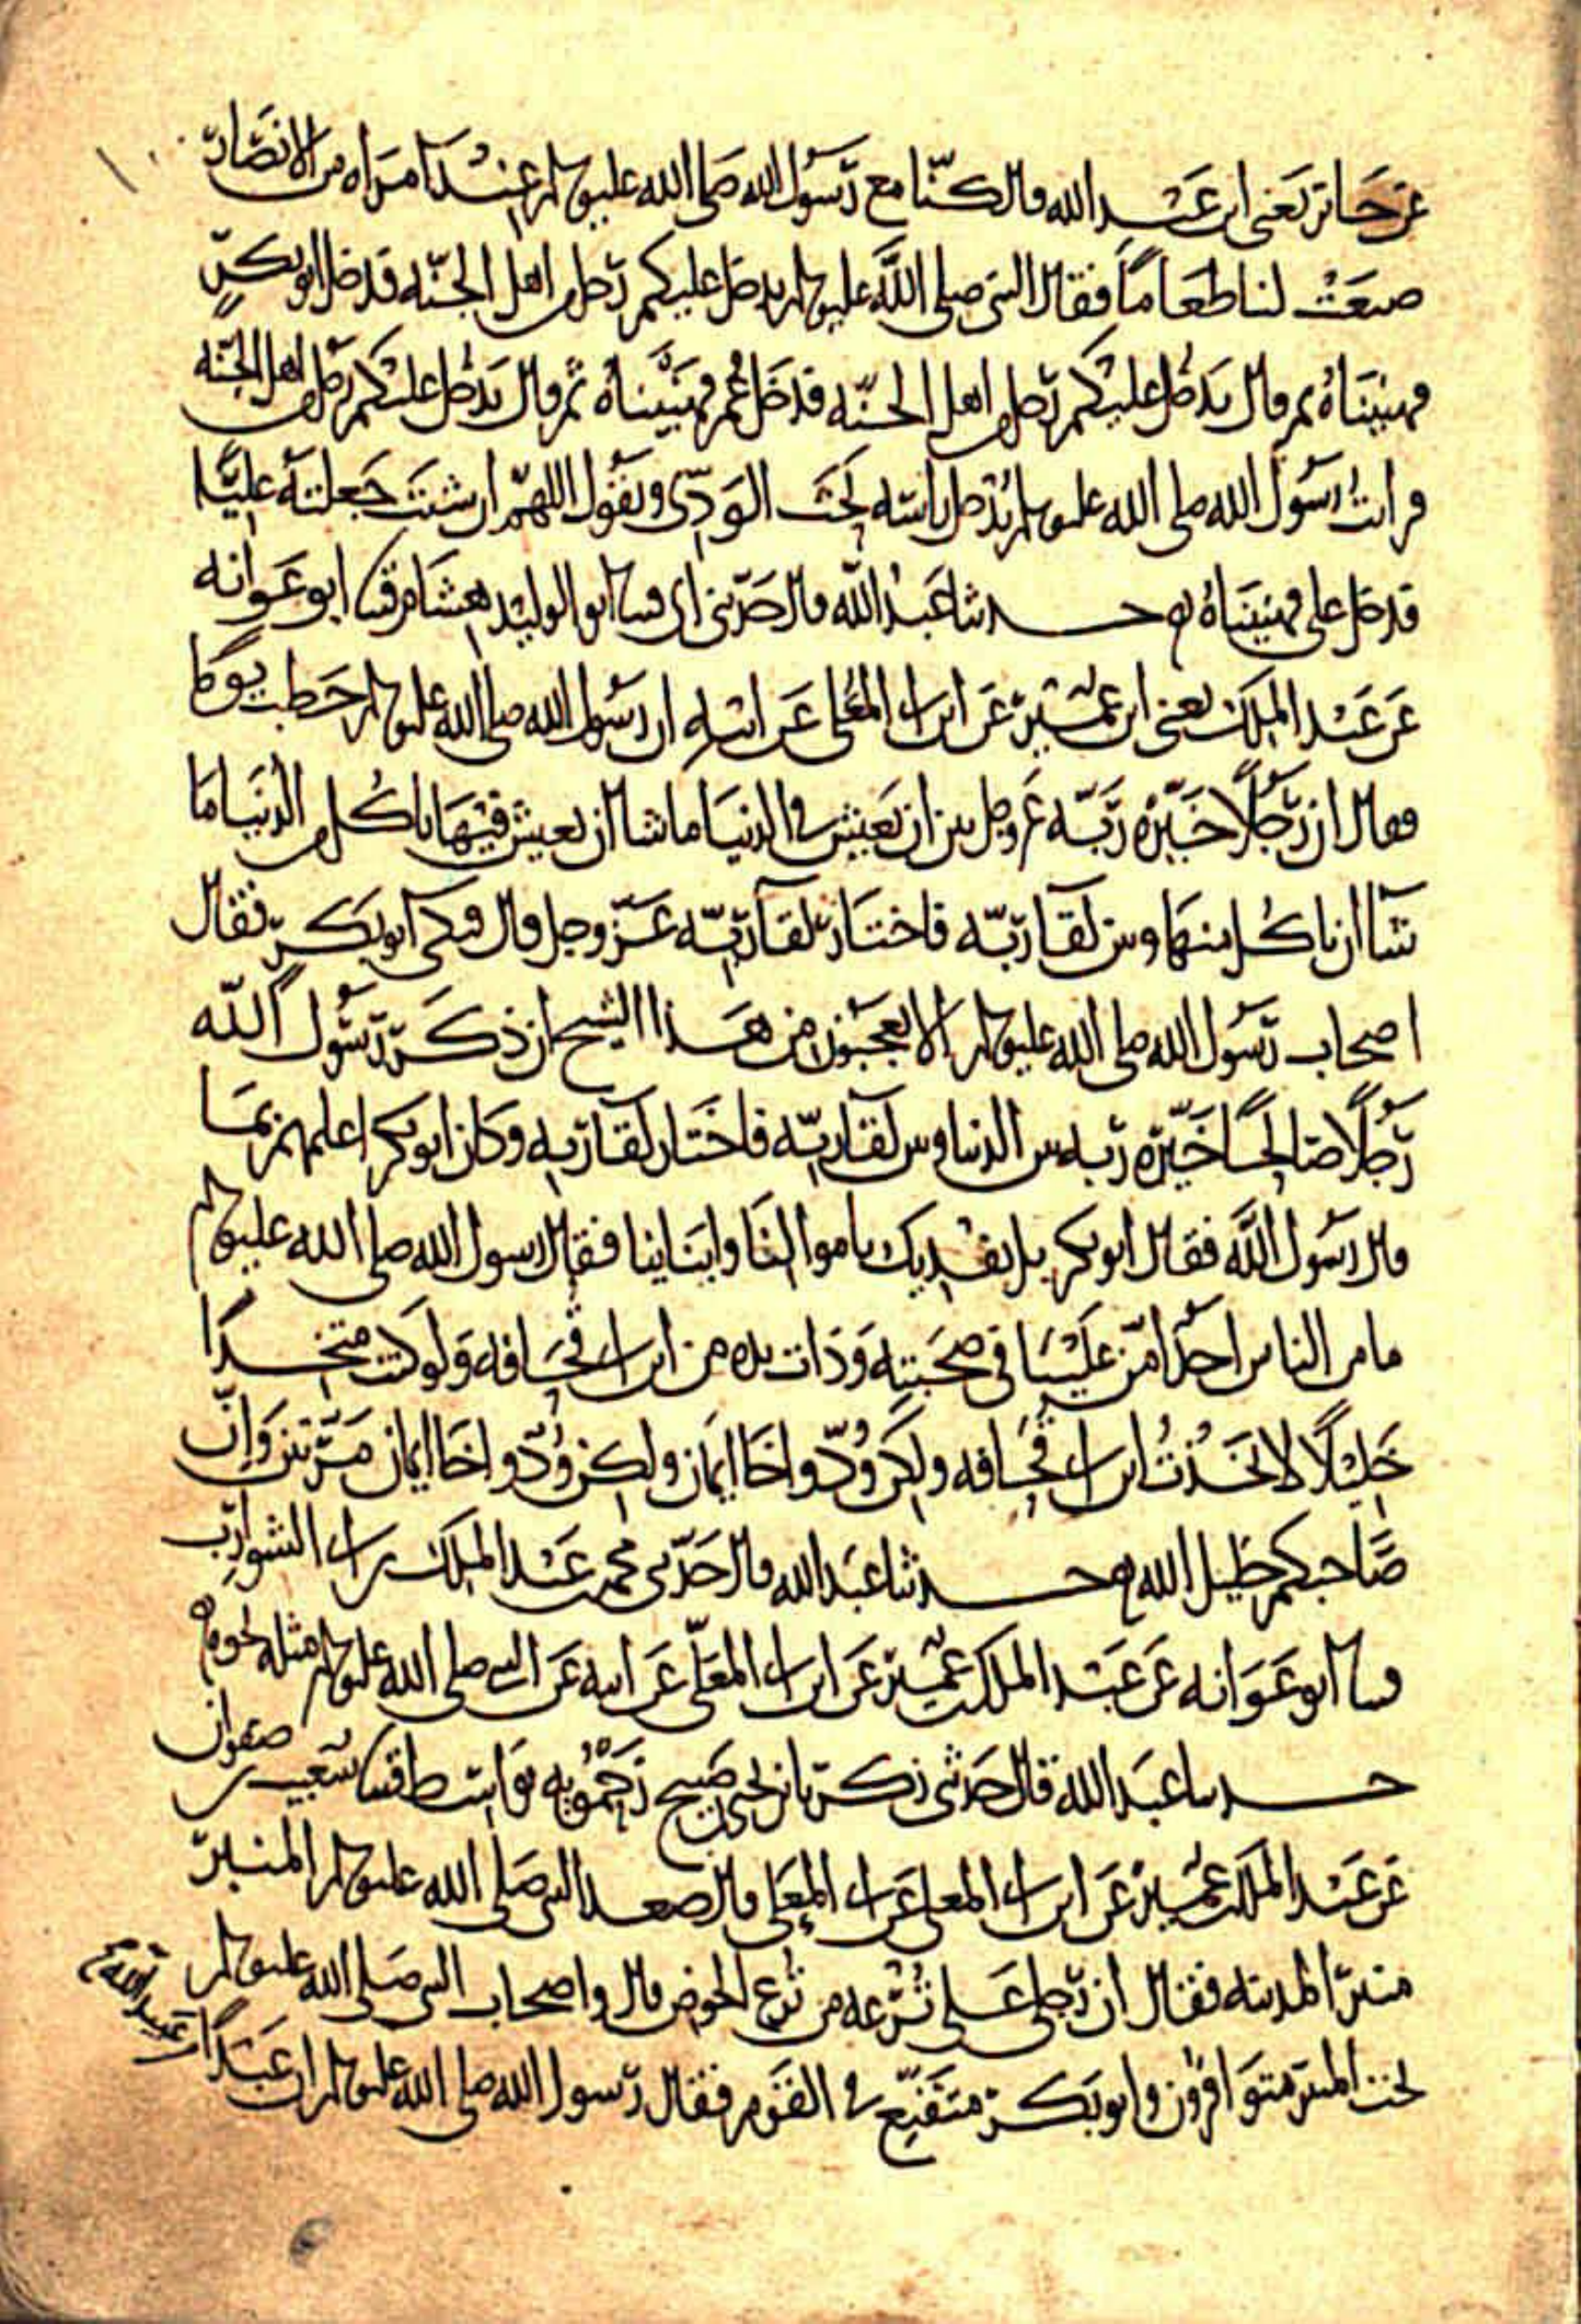 عن جابر يعني ابن عبد الله قال كنا مع رسول الله صلى الله عليه وسلم عند امراه من الانصار
صنعت لنا طعاماً فقال النبي صلى الله عليه وسلم يدخل عليكم رجل من اهل الجنه فدخل ابو بكر
فهنيناه ثم قال يدخل عليكم رجل من اهل الجنه فدخل عمر فهنيناه ثم قال يدخل عليكم رجل من اهل الجنه
فرايت رسول الله صلى الله عليه وسلم يدخل راسه تحت الودي ويقول اللهم ان شئت جعلته عليًا
فدخل علي فهنيناه حدثنا عبد الله قال حدثني ابي قثنا ابو الوليد هشام قثنا ابو عوانه
عن عبد الملك يعني ابن عمير عن ابن ابي المعلى عن ابيه ان رسول الله صلى الله عليه وسلم خطب يوما
فقال ان رجلًا خيره ربه عز وجل بين ان يعيش في الدنيا ما شا ان يعيش فيها ياكل من الدنيا ما
شآ ان ياكل منها وبين لقآ ربه فاختار لقآ ربه عز وجل قال فبكى ابو بكر فقال
اصحاب رسول الله صلى الله عليه وسلم الا تعجبون من هذا الشيخ ان ذكر رسول الله
رجلًا صالحًا خيره ربه بين الدنيا وبين لقآ ربه فاختار لقآ ربه وكان ابو بكر اعلمهم بما
قال رسول الله فقال ابو بكر بل نفديك باموالنا وابناينا فقال رسول الله صلى الله عليه وسلم
ما من الناس احد امن علينا في صحبته وذات يده من ابن ابي قحافه ولو كنت متخذا
خليلًا لاتخذت ابن ابي قحافه ولكن ود واخا ايمان ولكن ود واخا ايمان مرتين وان
صاحبكم خليل الله حدثنا عبد الله قال حدثني محمد بن عبد الملك بن ابي الشوارب
قثنا ابو عوانه عن عبد الملك بن عمير عن ابن ابي المعلى عن ابيه عن النبي صلى الله عليه وسلم مثله نحوه
حدثنا عبد الله قال حدثني زكريا بن يحيى بن صبيح زحمويه بواسط قثنا شعيب بن صفوان
عن عبد الملك بن عمير عن ابن ابي المعلى عن ابي المعلى قال صعد النبي صلى الله عليه وسلم المنبر
منبر المدينه فقال ان رجلي على ترعه من ترع الحوض قال واصحاب النبي صلى الله عليه وسلم
تحت المنبر متوافرون وابو بكر متقنع في القوم فقال رسول الله صلى الله عليه وسلم ان عبدًا